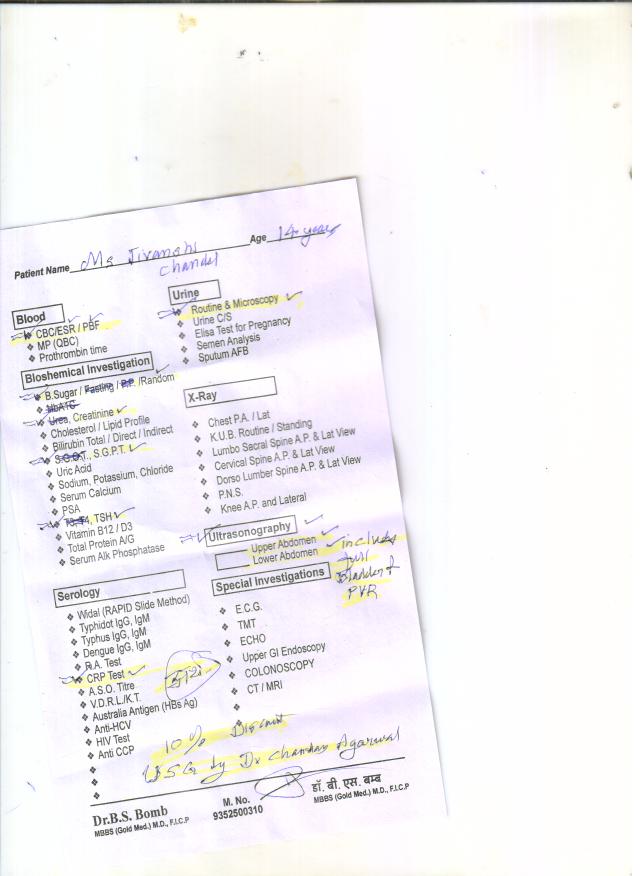 Patient Name Ms Jivanshi Age 14 years
Chandel
Blood
CBC/ESR / PBF
MP (QBC)
Prothrombin time
Bioshemical Investigation
B.Sugar / Fasting / P.P. /Random
HbA1C
Urea, Creatinine
Cholesterol / Lipid Profile
Bilirubin Total / Direct / Indirect
S.G.O.T., S.G.P.T.
Uric Acid
Sodium, Potassium, Chloride
Serum Calcium
PSA
T3, T4, TSH
Vitamin B12 / D3
Total Protein A/G
Serum Alk Phosphatase
Serology
Widal (RAPID Slide Method)
Typhidot IgG, IgM
Typhus IgG, IgM
Dengue IgG, IgM
R.A. Test
CRP Test
A.S.O. Titre
V.D.R.L./K.T.
Australia Antigen (HBs Ag)
Anti-HCV
HIV Test
Anti CCP
Urine
Routine & Microscopy
Urine C/S
Elisa Test for Pregnancy
Semen Analysis
Sputum AFB
X-Ray
Chest P.A. / Lat
K.U.B. Routine / Standing
Lumbo Sacral Spine A.P. & Lat View
Cervical Spine A.P. & Lat View
Dorso Lumber Spine A.P. & Lat View
P.N.S.
Knee A.P. and Lateral
Ultrasonography
Upper Abdomen
Lower Abdomen
include
full
Bladder &
PVR
Special Investigations
E.C.G.
TMT
ECHO
Upper GI Endoscopy
COLONOSCOPY
CT / MRI
10% Discount
USG by Dr Chandan Agarwal
Dr.B.S. Bomb
MBBS (Gold Med.) M.D., F.I.C.P
M. No.
9352500310
डॉ. बी. एस. बम्ब
MBBS (Gold Med.) M.D., F.I.C.P